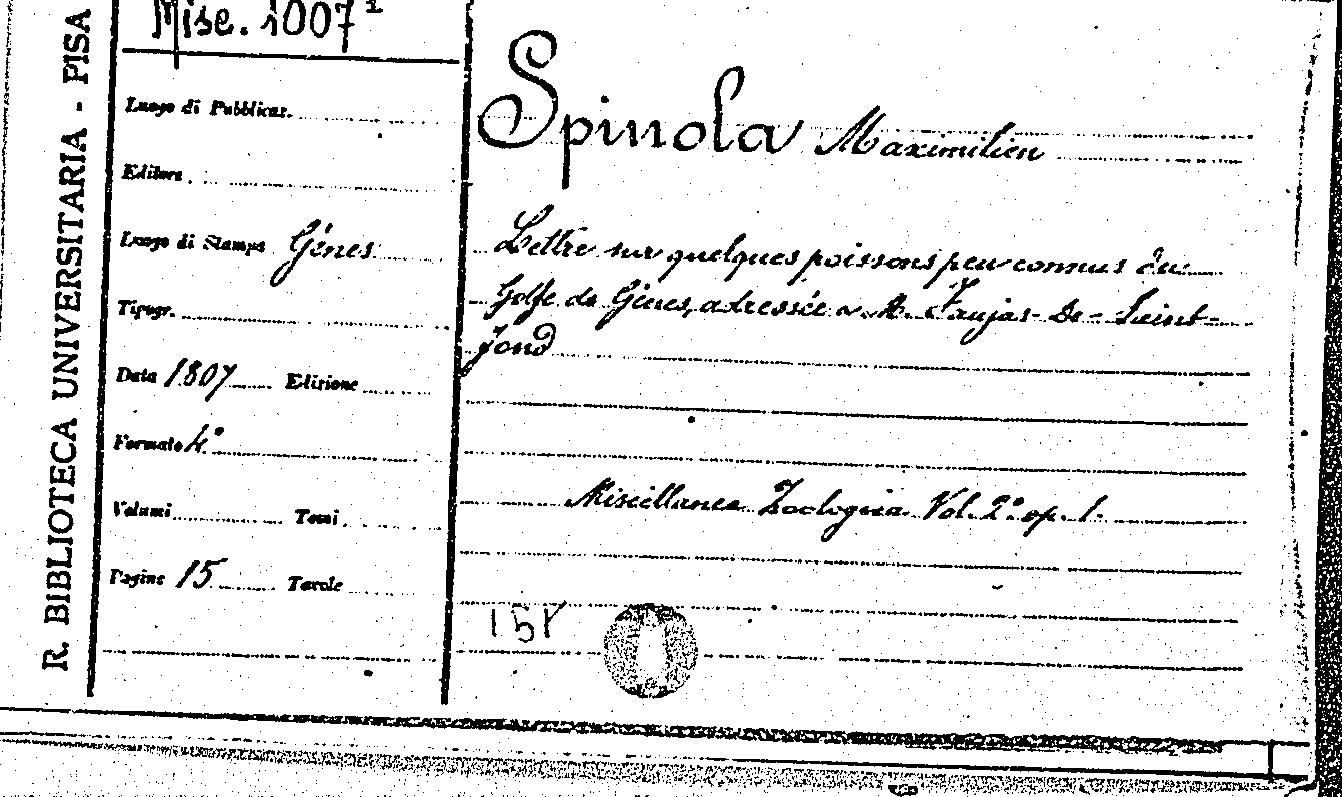 R. BIBLIOTECA UNIVERSITARIA - PISA
Misc. 1007 1
Luogo di Pubblicaz.
Editore
Luogo di Stampa Gênes
Tipogr.
Data 1807 Edizione
Formato 4°
Volumi Tomi
Pagine 15 Tavole
Spinola Maximilien
Lettre sur quelques poissons peu connus du
Golfe de Gênes, adressée a M. Faujas-De-Saint-
fond
Miscellanea Zoologica Vol. 2° op. 1.